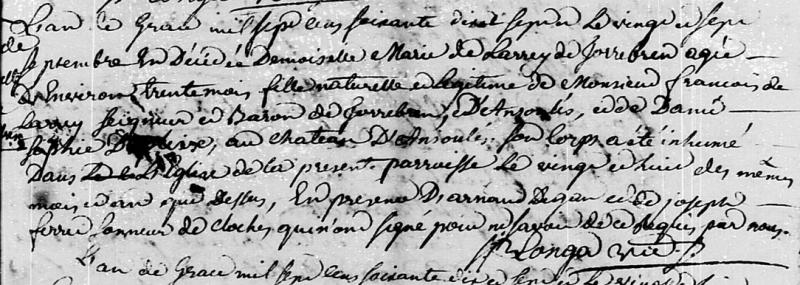 L'an de Grace mil sept cens soixante dix et sept et Le vingt et sept
septembre Est Décédée Demoiselle Marie de Larrey de Jorrebren agée
d'Environ trente mois fille naturelle et legitime de Monsieur francois de
Larrey Seigneur et Baron de Jorrebren, et D'Ansoulés, et de Dame
Sophie au chateau D'Ansoulés. Son Corps a été inhumé
Dans L'Eglise de la present parroisse Le vingt et huit des mêmes
mois et an que Dessus, En presence D'arnaud Degan et de joseph
ferré sonneur de cloches qui n'ont signé pour ne savoir de ce Requis par nous.
Longa vic
L'an de Grace mil sept cens soixante dix et sept et Le vingt